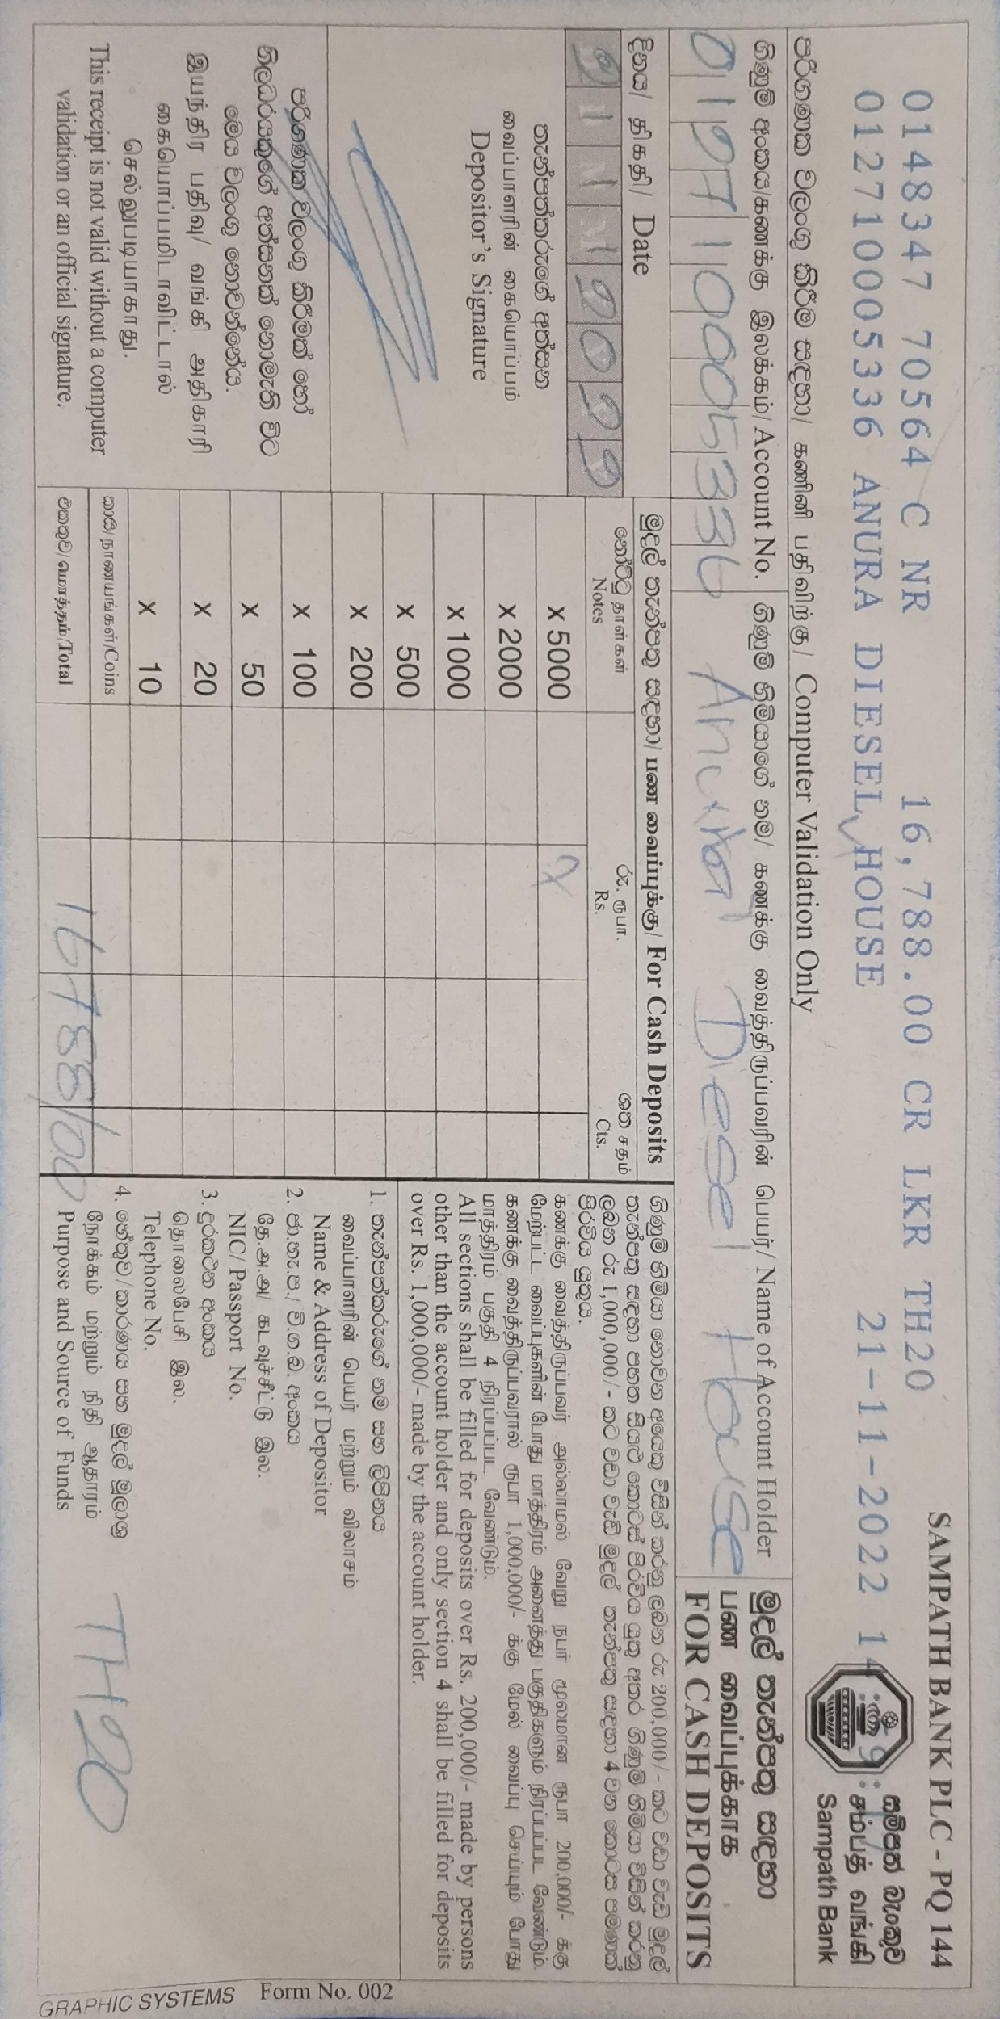 SAMPATH BANK PLC - PQ 144
0148347 70564 C NR 16,788.00 CR LKR TH20
012710005336 ANURA DIESEL HOUSE 21-11-2022 14
සම්පත් බැංකුව
சம்பத் வங்கி
Sampath Bank
පරිගණක වලංගු කිරීම සඳහා/ கணினி பதிவிற்கு/ Computer Validation Only
ගිණුම් අංකය/கணக்கு இலக்கம்/ Account No.
ගිණුම් හිමියාගේ නම/ கணக்கு வைத்திருப்பவரின் பெயர்/ Name of Account Holder
Anura Diesel House
මුදල් තැන්පතු සඳහා
பண வைப்புக்காக
FOR CASH DEPOSITS
දිනය/ திகதி/ Date
තැන්පත්කරුගේ අත්සන
வைப்பாளரின் கையொப்பம்
Depositor's Signature
පරිගණක වලංගු කිරීමක් හෝ
නිලධරයකුගේ අත්සනක් නොමැති විට
මෙය වලංගු නොවන්නේය.
இயந்திர பதிவு/ வங்கி அதிகாரி
கையொப்பமிடாவிட்டால்
செல்லுபடியாகாது.
This receipt is not valid without a computer
validation or an official signature.
මුදල් තැන්පතු සඳහා/ பண வைப்புக்கு/ For Cash Deposits
නෝට්ටු தாள்கள்
Notes
රු. ரூபா.
Rs.
ශත சதம்
Cts.
X 5000
X 2000
X 1000
X 500
X 200
X 100
X 50
X 20
X 10
කාසි/நாணயங்கள்/Coins
එකතුව/மொத்தம்/Total 16788/00
ගිණුම් හිමියා නොවන අයෙකු විසින් කරනු ලබන රු 200,000/- කට වඩා වැඩි මුදල්
තැන්පතු සඳහා පහත සියළු කොටස් පිරවිය යුතු අතර ගිණුම් හිමියා විසින් කරනු
ලබන රු 1,000,000/- කට වඩා වැඩි මුදල් තැන්පතු සඳහා 4 වන කොටස පමණක්
පිරවිය යුතුය.
கணக்கு வைத்திருப்பவர் அல்லாமல் வேறு நபர் மூலமான ரூபா 200,000/- க்கு
மேற்பட்ட வைப்புகளின் போது மாத்திரம் அனைத்து பகுதிகளும் நிரப்பப்பட வேண்டும்.
கணக்கு வைத்திருப்பவரால் ரூபா 1,000,000/- க்கு மேல் வைப்பு செய்யும் போது
மாத்திரம் பகுதி 4 நிரப்பப்பட வேண்டும்.
All sections shall be filled for deposits over Rs. 200,000/- made by persons
other than the account holder and only section 4 shall be filled for deposits
over Rs. 1,000,000/- made by the account holder.
1. තැන්පත්කරුගේ නම සහ ලිපිනය
வைப்பாளரின் பெயர் மற்றும் விலாசம்
Name & Address of Depositor
2. ජා.හැ.ප./ වි.ග.බ. අංකය
தே.அ.அ/ கடவுச்சீட்டு இல.
NIC/ Passport No.
3. දුරකථන අංකය
தொலைபேசி இல.
Telephone No.
4. හේතුව/කාරණය සහ මුදල් මූලාශ්‍ර
நோக்கம் மற்றும் நிதி ஆதாரம்
Purpose and Source of Funds
TH20
GRAPHIC SYSTEMS Form No. 002